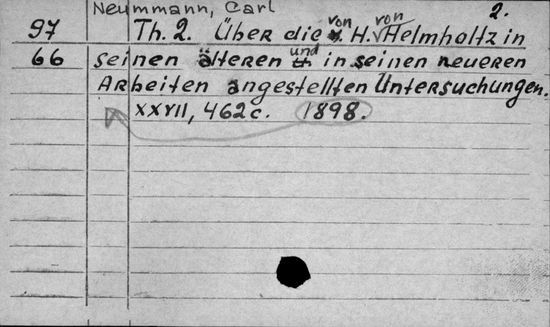 Neummann, Carl 2.
97 Th. 2. Über die von H. von Helmholtz in
66 seinen älteren und in seinen neueren
Arbeiten angestellten Untersuchungen.
XXVII, 462c. 1898.